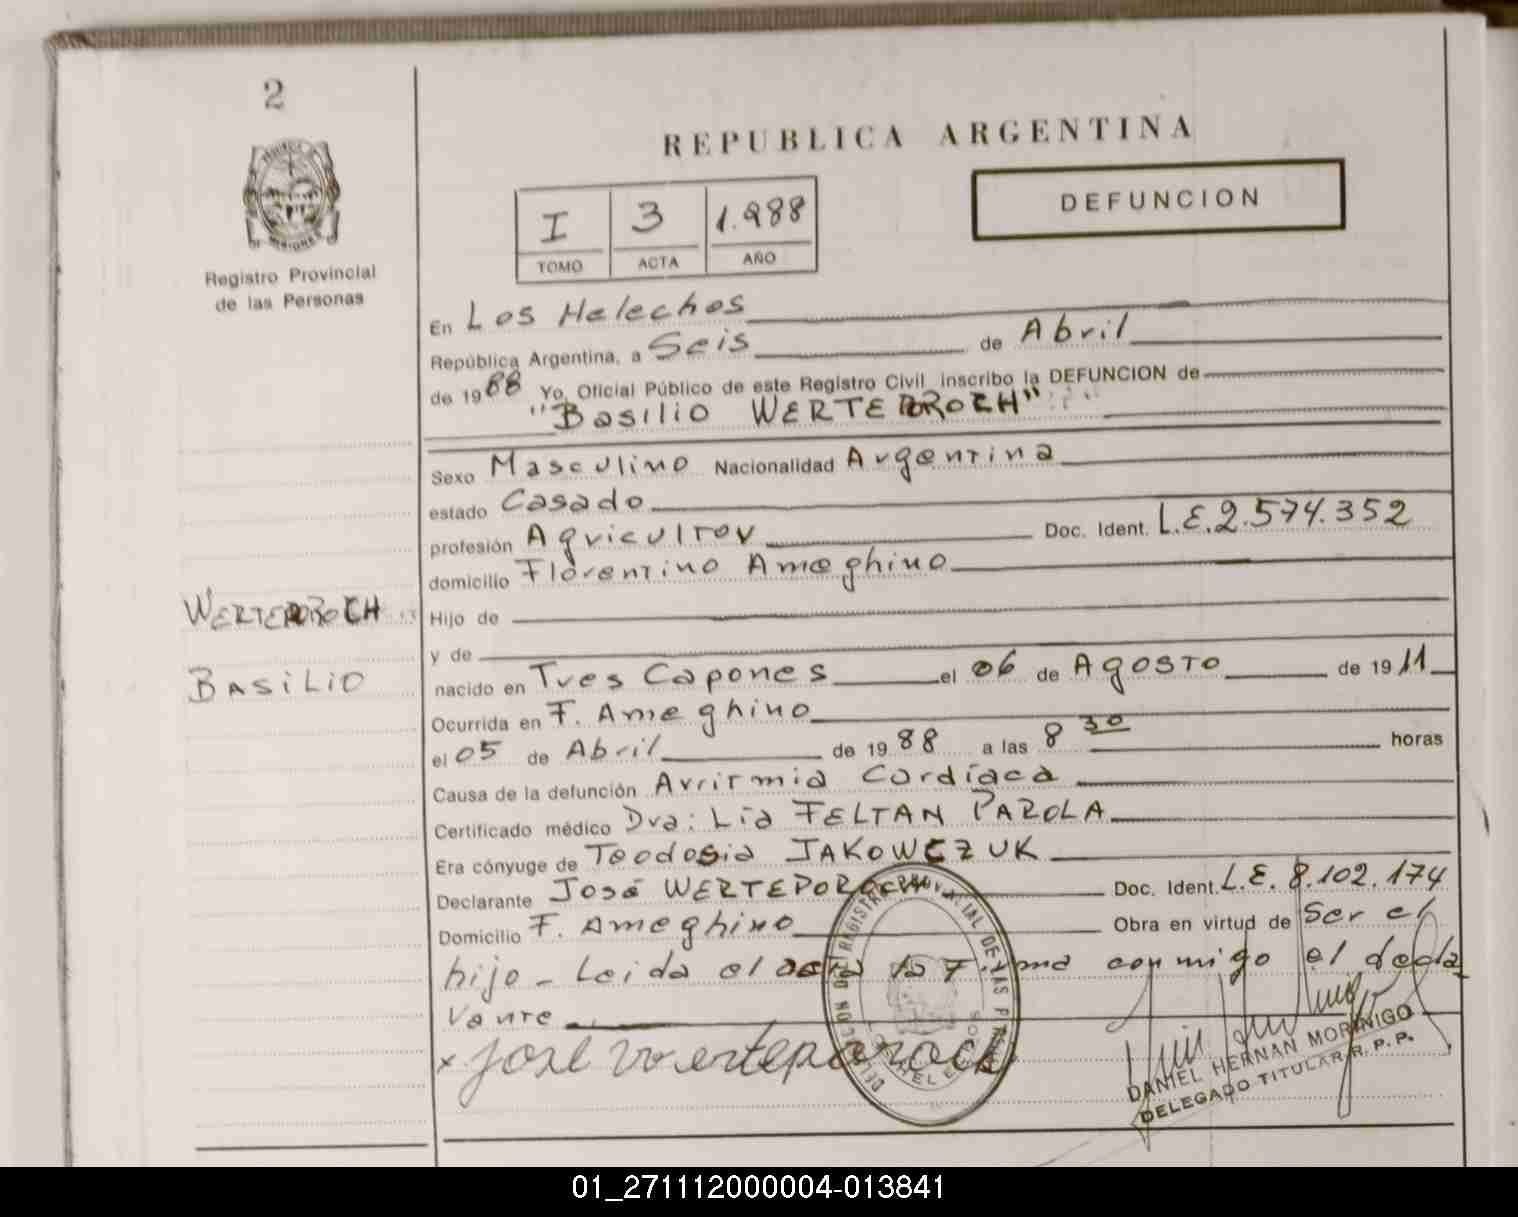 2
REPUBLICA ARGENTINA
I 3 1.988
TOMO ACTA AÑO
DEFUNCION
Registro Provincial
de las Personas
En Los Helechos
República Argentina, a Seis de Abril
de 1988 Yo, Oficial Público de este Registro Civil, inscribo la DEFUNCION de
"Basilio WERTEPOROCH"
Sexo Masculino Nacionalidad Argentina
estado Casado
profesión Agricultor Doc. Ident. L.E.2.574.352
domicilio Florentino Ameghino
WERTEPOROCH
Hijo de
y de
BASILIO
nacido en Tres Capones el 06 de Agosto de 1911
Ocurrida en F. Ameghino
el 05 de Abril de 1988 a las 8 30 horas
Causa de la defunción Arritmia Cardíaca
Certificado médico Dra: Lia FELTAN PAROLA
Era cónyuge de Teodosia JAKOWCZUK
Declarante José WERTEPOROCH Doc. Ident. L.E. 8.102.174
Domicilio F. Ameghino Obra en virtud de Ser el
hijo - Leida el acta la Firma conmigo el decla
rante
x José Werteporoch
DANIEL HERNAN MORINIGO
DELEGADO TITULAR R. P. P.
01_271112000004-013841